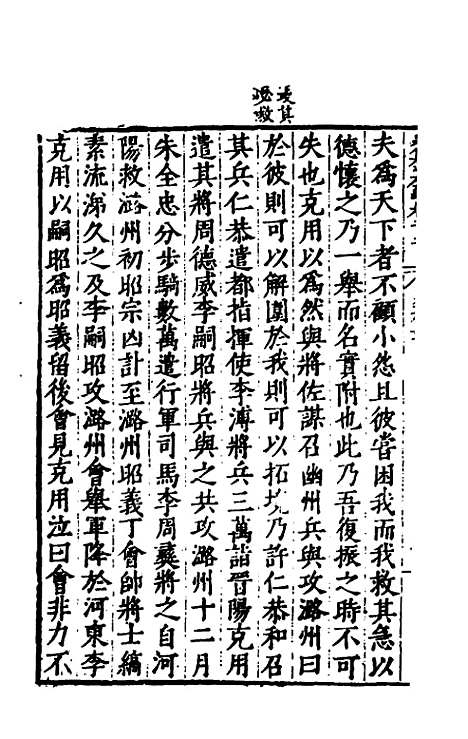 夫爲天下者不顧小怨且彼嘗困我而我救其急以
德懷之乃一舉而名實附也此乃吾復振之時不可
失也克用以爲然與將佐謀召幽州兵與攻潞州曰
於彼則可以解圍於我則可以拓境乃許仁恭和召
其兵仁恭遣都指揮使李溥將兵三萬詣晉陽克用
遣其將周德威李嗣昭將兵與之共攻潞州十二月
朱全忠分步騎數萬遣行軍司馬李周彝將之自河
陽救潞州初昭宗凶訃至潞州昭義丁會帥將士縞
素流涕久之及李嗣昭攻潞州會舉軍降於河東李
克用以嗣昭爲昭義留後會見克用泣曰會非力不